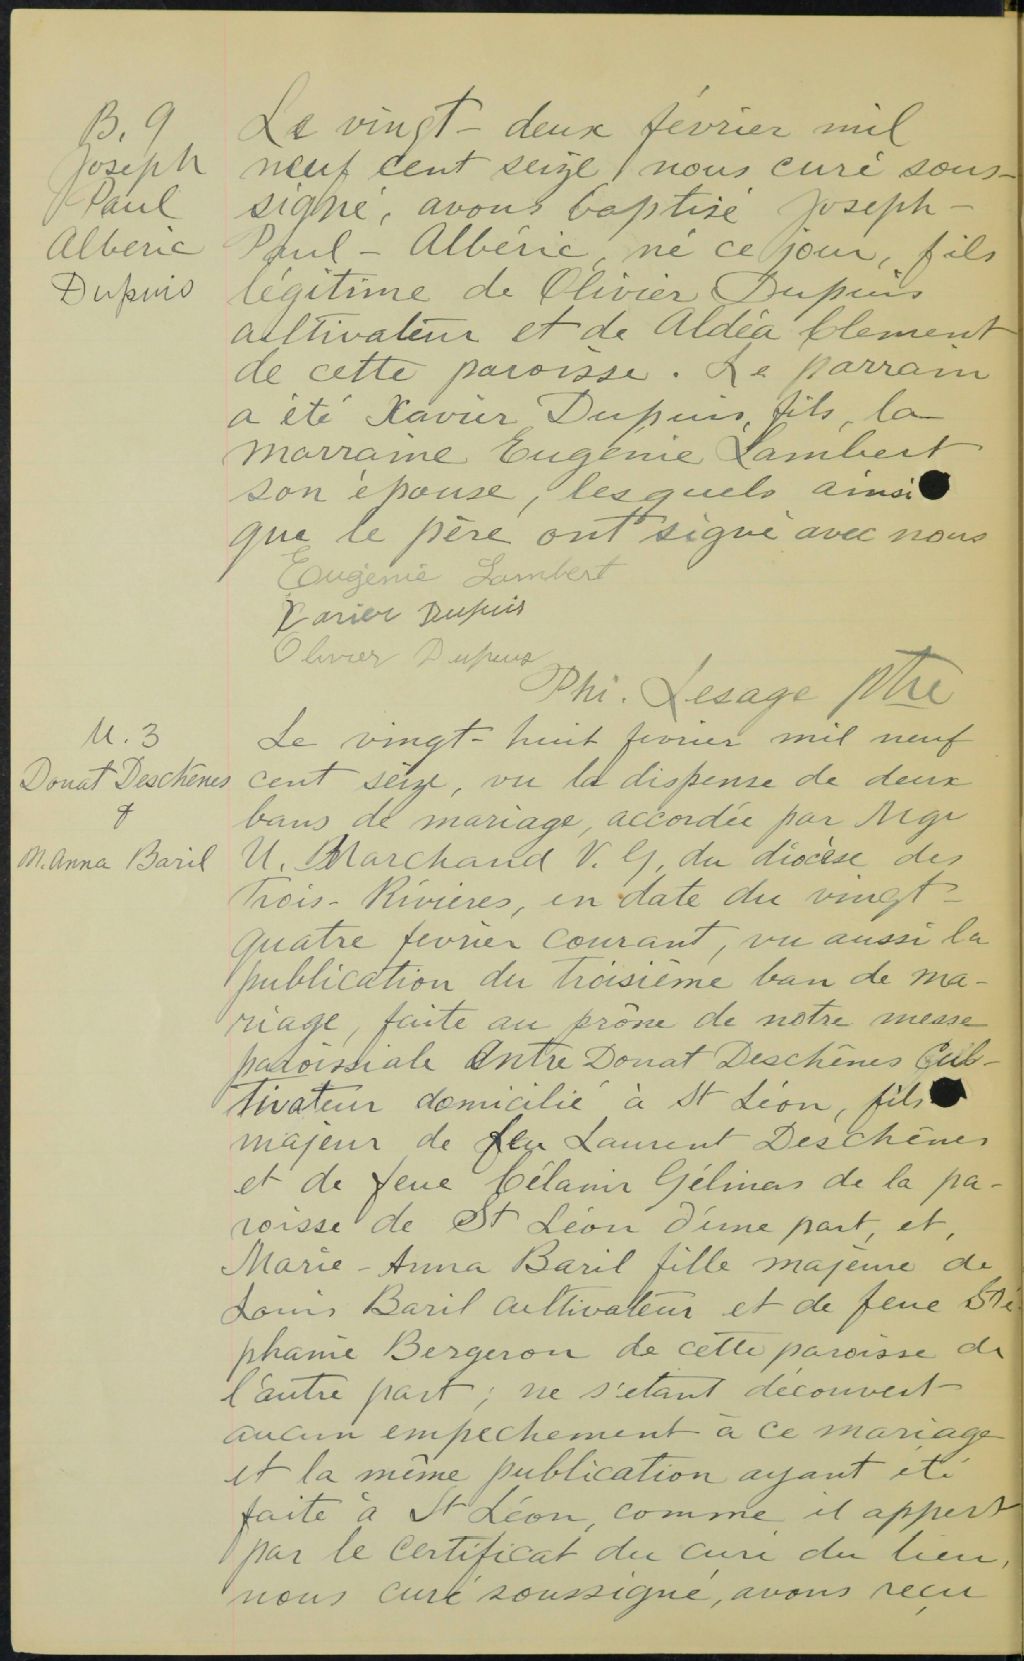 B. 9
Joseph
Paul
Albéric
Dupuis
Le vingt-deux février mil
neuf cent seize, nous curé sous-
signé, avons baptisé Joseph-
Paul-Albéric, né ce jour, fils
légitime de Olivier Dupuis
cultivateur et de Aldéa Clement
de cette paroisse. Le parrain
a été Xavier Dupuis, fils, la
marraine Eugénie Lambert
son épouse, lesquels ainsi
que le père ont signé avec nous
Eugénie Lambert
Xavier Dupuis
Olivier Dupuis
Phi. Lesage ptre
M. 3
Donat Deschênes
&
M. Anna Baril
Le vingt-huit fevrier mil neuf
cent seize, vu la dispense de deux
bans de mariage, accordée par Mgr
U. Marchand V. G. du diocèse des
Trois-Rivières, en date du vingt-
quatre fevrier courant, vu aussi la
publication du troisième ban de ma-
riage, faite au prône de notre messe
paroissiale entre Donat Deschênes Cul-
tivateur domicilié à St Léon, fils
majeur de feu Laurent Deschênes
et de feue Célanir Gélinas de la pa-
roisse de St Léon d'une part, et,
Marie-Anna Baril fille majeure de
Louis Baril cultivateur et de feue Sté-
phanie Bergeron de cette paroisse de
l'autre part; ne s'etant découvert
aucun empechement à ce mariage
et la même publication ayant été
faite à St Léon, comme il appert
par le certificat du curé du lieu,
nous curé soussigné, avons reçu